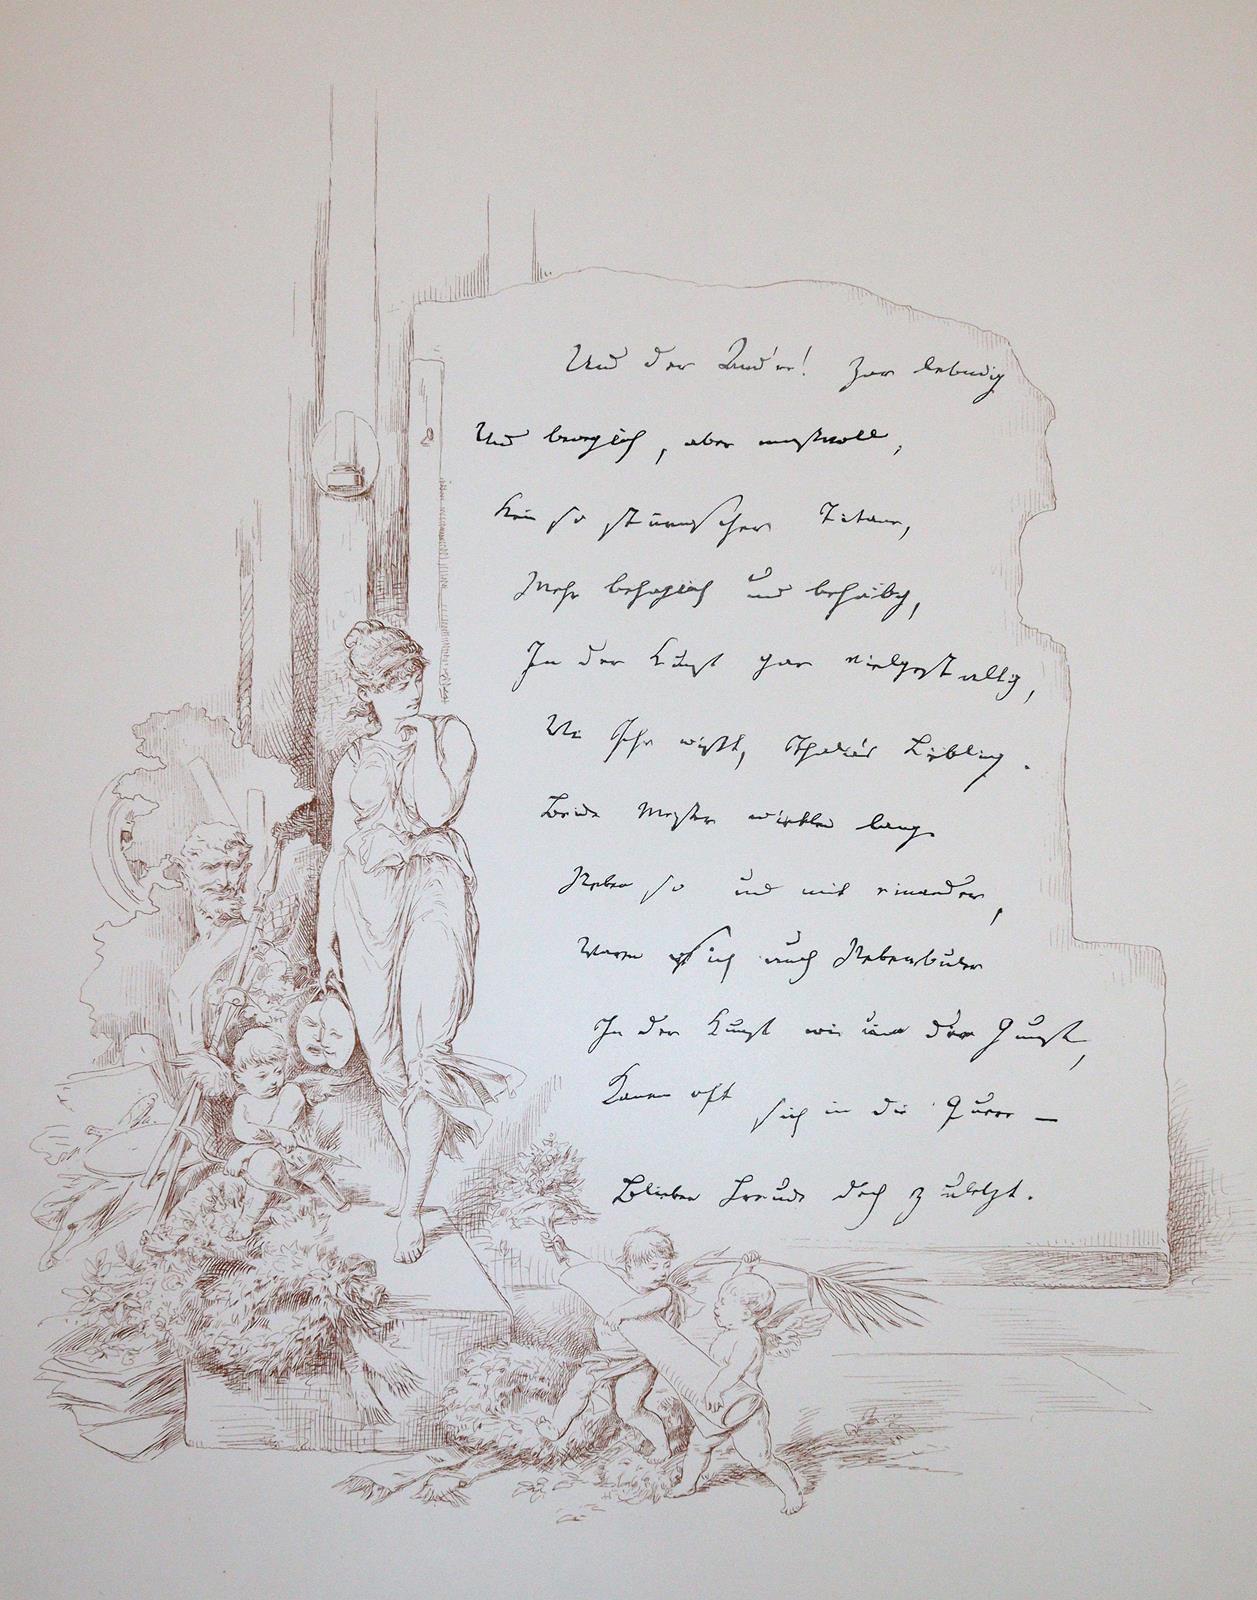 Und der And're! Zwar lebendig
Und beweglich, aber maßvoll,
Kein so stürmischer Titane,
Mehr behaglich und behäbig,
In der Kunst gar vielgestaltig,
Wie Ihr wißt, Thalia's Liebling.
Beide Meister wirkten lang
Neben so und mit einander,
Waren sich auch Nebenbuler
In der Kunst wie um der Gunst,
Kamen oft sich in die Quere —
Blieben Freunde doch zuletzt.